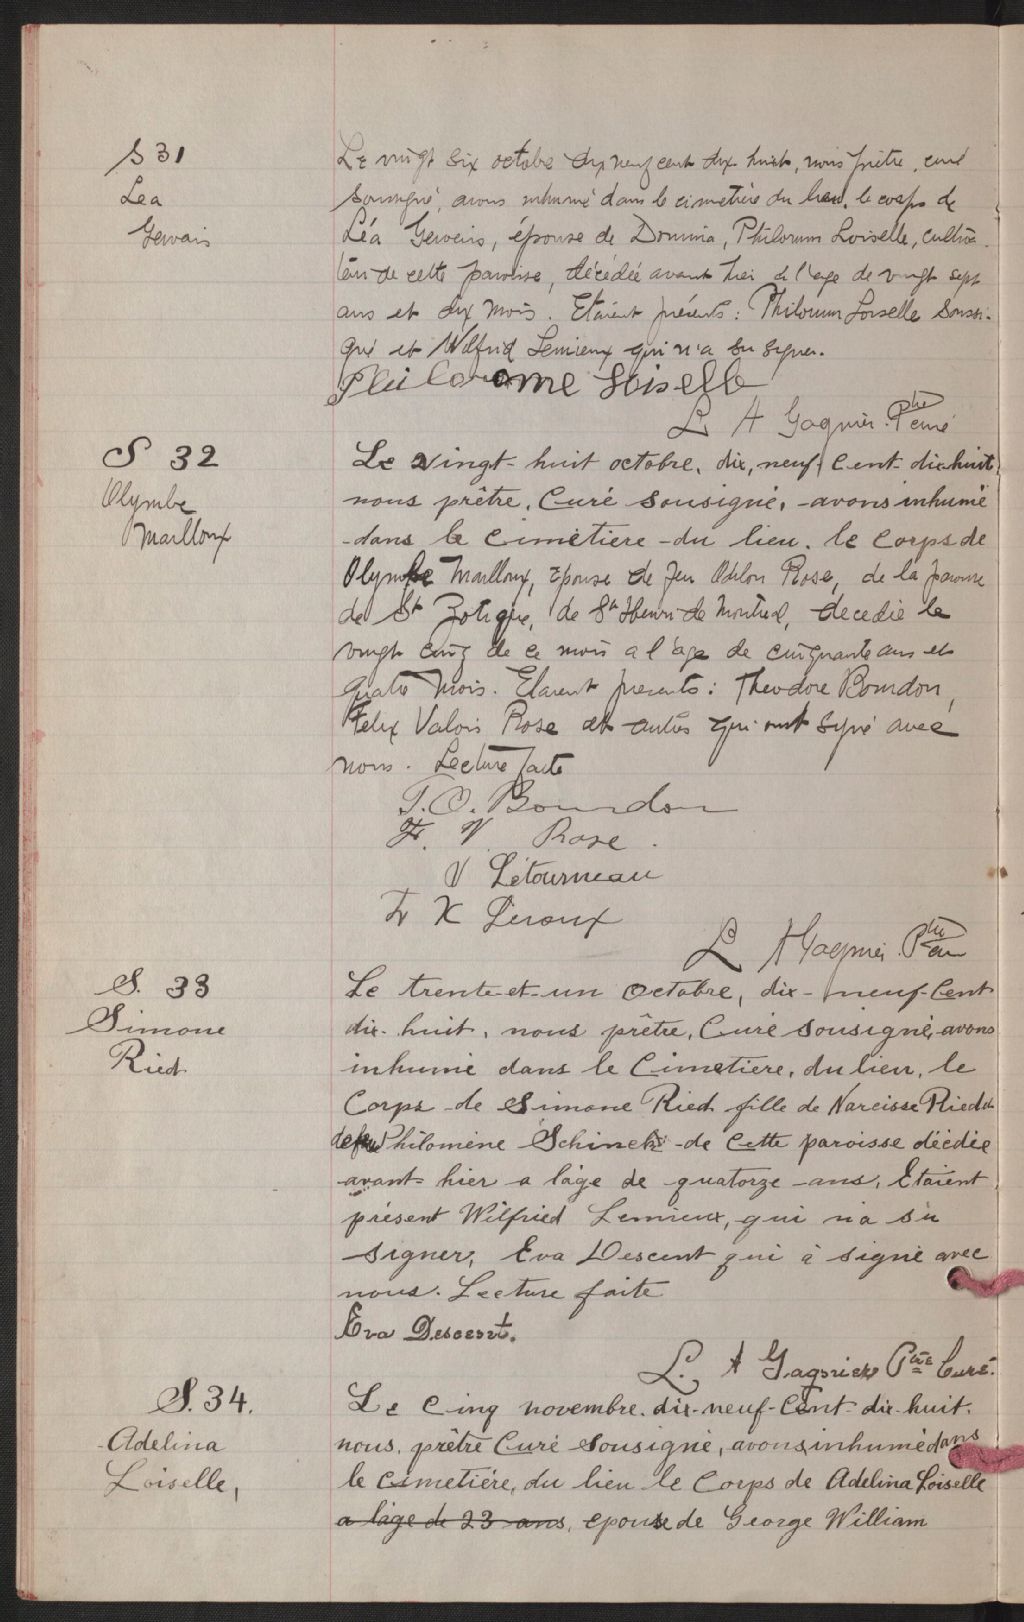 S 31
Léa
Gervais
Le vingt six octobre dix neuf cent dix huit, nous prêtre, curé
soussigné, avons inhumé dans le cimetière du lieu, le corps de
Léa Gervais, épouse de Domina, Philorum Loiselle, cultiva-
teur de cette paroisse, décédée avant hier à l'age de vingt sept
ans et dix mois. Etaient présents: Philorum Loiselle soussi-
gné et Wilfrid Lemieux qui n'a su signer.
Philorome Loiselle
L A Gagnier Ptre curé
S 32
Olymbe
Mailloux
Le vingt-huit octobre, dix, neuf, Cent-dix-huit,
nous prêtre, Curé sousigné, avons inhumé
dans le Cimetiere du lieu, le Corps de
Olymbe Mailloux, épouse de feu Odilon Rose, de la paroisse
de St Zotique, de St Henri de Montréal, decedée le
vingt cinq de ce mois a l'age de cinquante ans et
quatre mois. Etaient presents: Theodore Bourdon,
Felix Valois Rose et autres qui ont signé avec
nous. Lecture faite
T. O. Bourdon
F. V. Rose.
V Létourneau
F X Leroux
L A Gagnier Ptre
S. 33
Simone
Ried
Le trente-et-un Octobre, dix-neuf-Cent
dix-huit, nous prêtre, Curé sousigné, avons
inhumé dans le Cimetiere, du lieu, le
Corps de Simone Ried fille de Narcisse Ried
de feu Philomène Schinck de Cette paroisse décédée
avant-hier a l'âge de quatorze ans, Etaient
présent Wilfried Lemieux, qui n'a su
signer, Eva Descent qui à signé avec
nous. Lecture faite
Eva Descent.
L. A Gagnier Ptre Curé.
S. 34.
Adelina
Loiselle,
Le Cinq novembre, dix-neuf-Cent-dix-huit.
nous, prêtre Curé sousigné, avons inhumé dans
le Cimetiére, du lieu le Corps de Adelina Loiselle
a l'age de 23 ans, epouse de George William